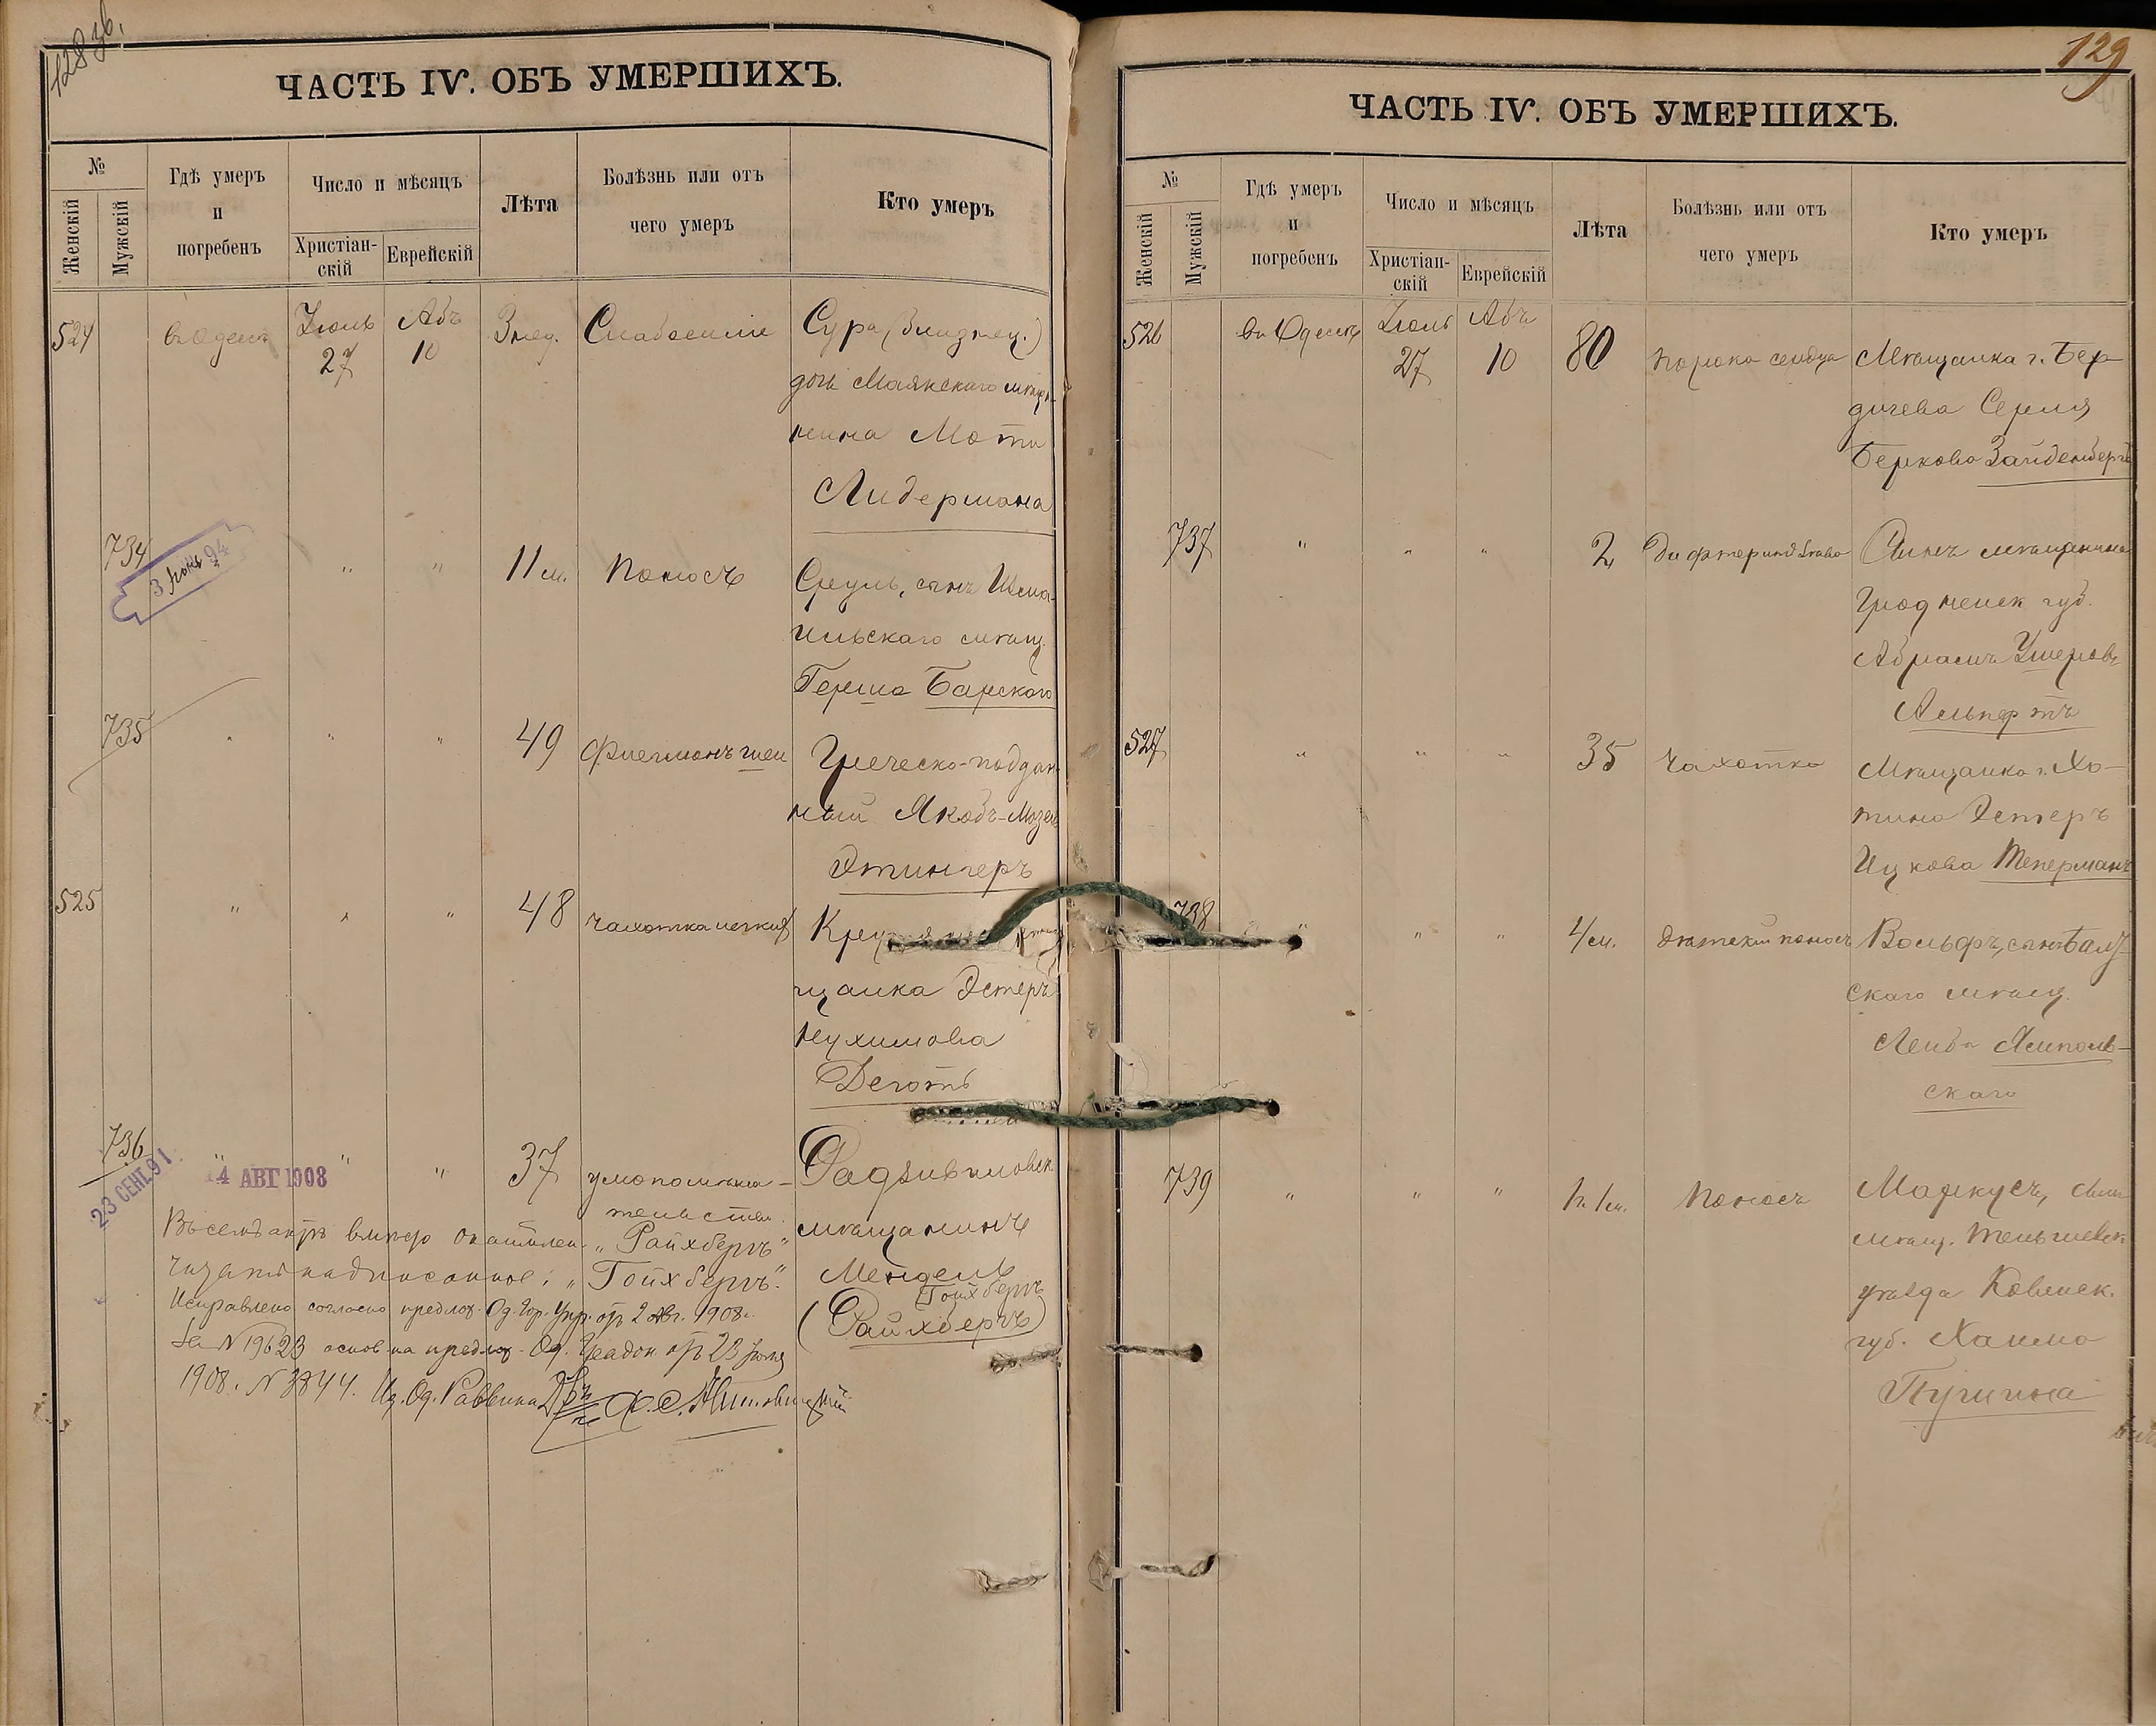 128 об.
ЧАСТЬ IV. ОБЪ УМЕРШИХЪ.
№
Женскій
Мужскій
Гдѣ умеръ
и
погребенъ
Число и мѣсяцъ
Христіан-
скій
Еврейскій
Лѣта
Болѣзнь или отъ
чего умеръ
Кто умеръ
524 въ Одессѣ Іюль 27 Абъ 10 3 нед. Слабосиліе Сура, (близнец.)
дочь Маякскаго мѣща-
нина Моти
Лидермана
734 " " 11 м. Поносъ Сруль, сынъ Исма-
ильскаго мѣщ.
Герша Барскаго
735 " " " 49 Флегмонъ шеи Греческо-поддан-
ный Якобъ-Мозесъ
Этингеръ
525 " " " 48 Чахотка легких
щанка Эстеръ
Нухимова
Деготь
736 " " " 37 умопомѣша-
тельство
Радзивиловск.
мѣщанинъ
Мендель
Гойхбергъ
(Райхбергъ)
23 СЕНТ. 91
4 АВГ 1908
Въ семъ актѣ вмѣсто "Райхбергъ"
читать надписанное: "Гойхбергъ".
Исправлено согласно предлож. Од. Гор. Упр. от 2 Авг. 1908 г.
за N 19623 основ. на предлож. Од. Градон. от 23 Іюля
1908. N 3844. Од. Раввина
129
ЧАСТЬ IV. ОБЪ УМЕРШИХЪ.
№
Женскій
Мужскій
Гдѣ умеръ
и
погребенъ
Число и мѣсяцъ
Христіан-
скій
Еврейскій
Лѣта
Болѣзнь или отъ
чего умеръ
Кто умеръ
526 въ Одессѣ Іюль 27 Абъ 10 80 порока сердца Мѣщанка г. Бер-
дичева Серля
Беркова Зайденбергъ
737 " " " 2 Дифтерит зѣва Сынъ мѣщанина
Гродненск губ.
Абрамъ Ушеровъ
Альпертъ
527 " " " 35 Чахотка Мѣщанка г. Хо-
тина Эстеръ
Ицкова Теперманъ
738 " " " 4 м. Дѣтскій поносъ Вольфъ, сынъ Балт-
скаго мѣщ.
Лейба Ямполь-
скаго
739 " " " 1 г. 1 м. Поносъ Маркусъ, сынъ
мѣщ. Тельшевск.
уѣзда Ковенск.
губ. Хаима
Пугина